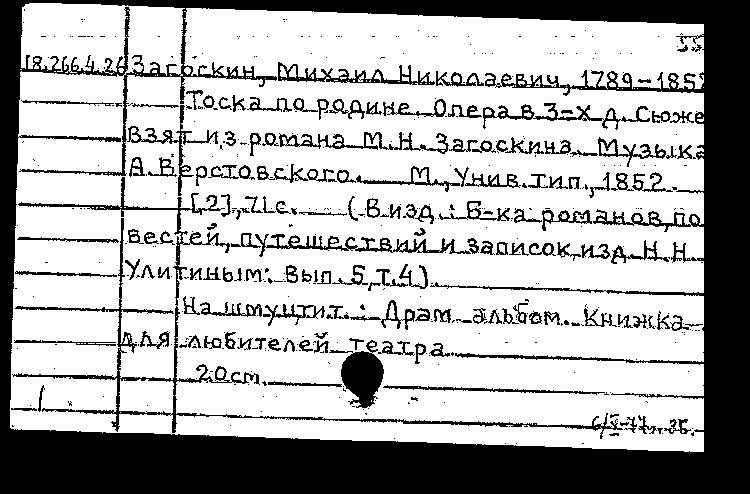 55
18.266.4.26 Загоскин, Михаил Николаевич, 1789-1852
Тоска по родине. Опера в 3-х д. Сюже
взят из романа М.Н. Загоскина. Музыка
А. Верстовского. М., Унив. тип., 1852.
[2], 71 с. (В изд.: Б-ка романов, по
вестей, путешествий и записок, изд. Н.Н.
Улитиным. Вып. 5, т. 4).
На шмуцтит.: Драм. альбом. Книжка
для любителей театра
20 см.